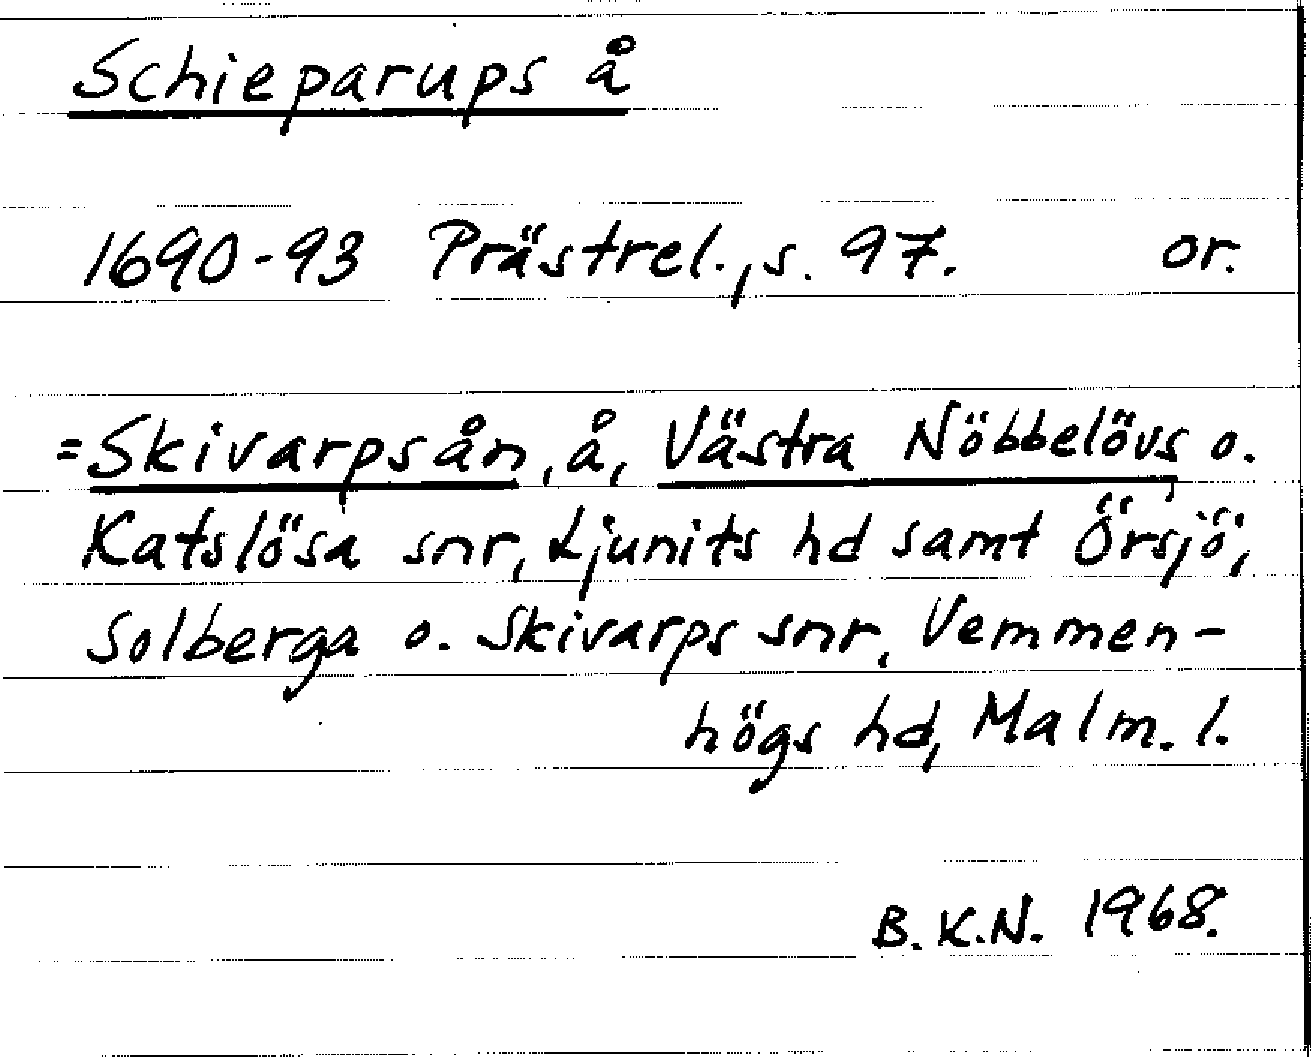 Schieparups å
1690-93 Prästrel., s. 97. or.
=Skivarpsån, å, Västra Nöbbelövs o.
Katslösa snr, Ljunits hd samt Örsjö,
Solberga o. Skivarps snr, Vemmen-
högs hd, Malm. l.
B.K.N. 1968.